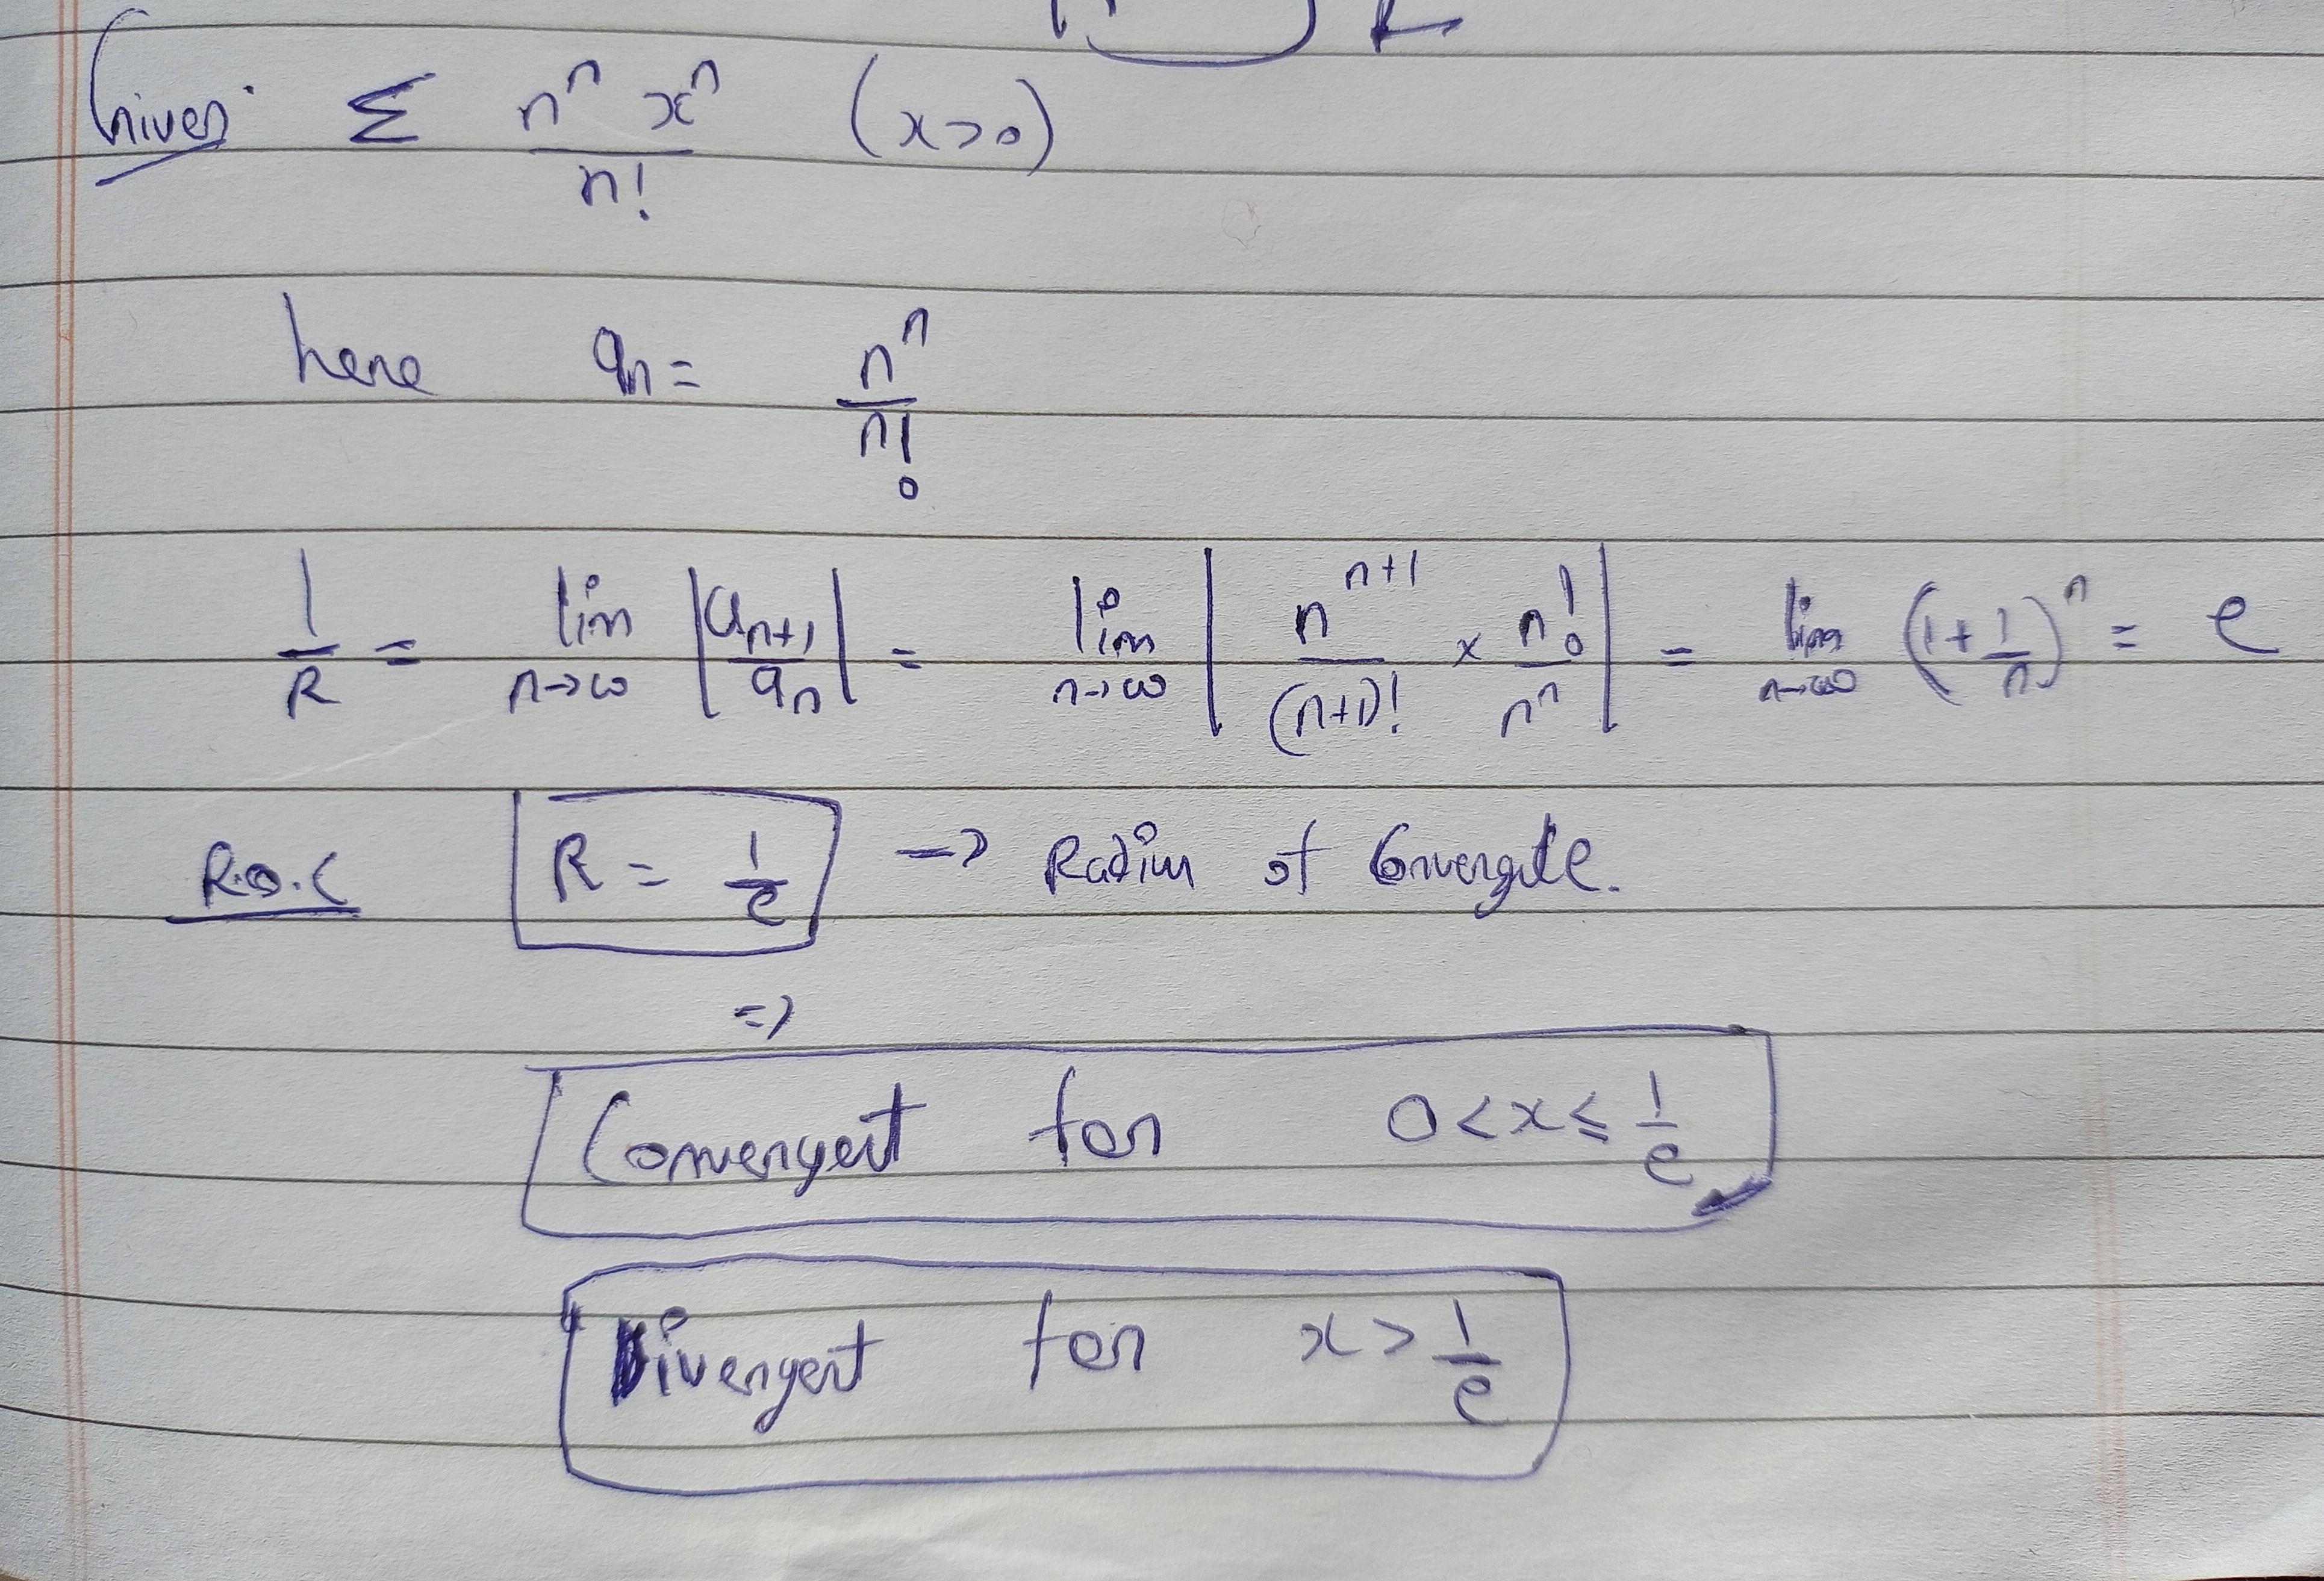 Given: Σ n^n x^n / n! (x>0)
here a_n = n^n / n!
1/R = lim n→∞ |a_{n+1} / a_n| = lim n→∞ | n^{n+1} / (n+1)! × n! / n^n | = lim n→∞ (1 + 1/n)^n = e
R.O.C R = 1/e → Radius of
⇒
Convergent for 0<x≤ 1/e
Divergent for x> 1/e